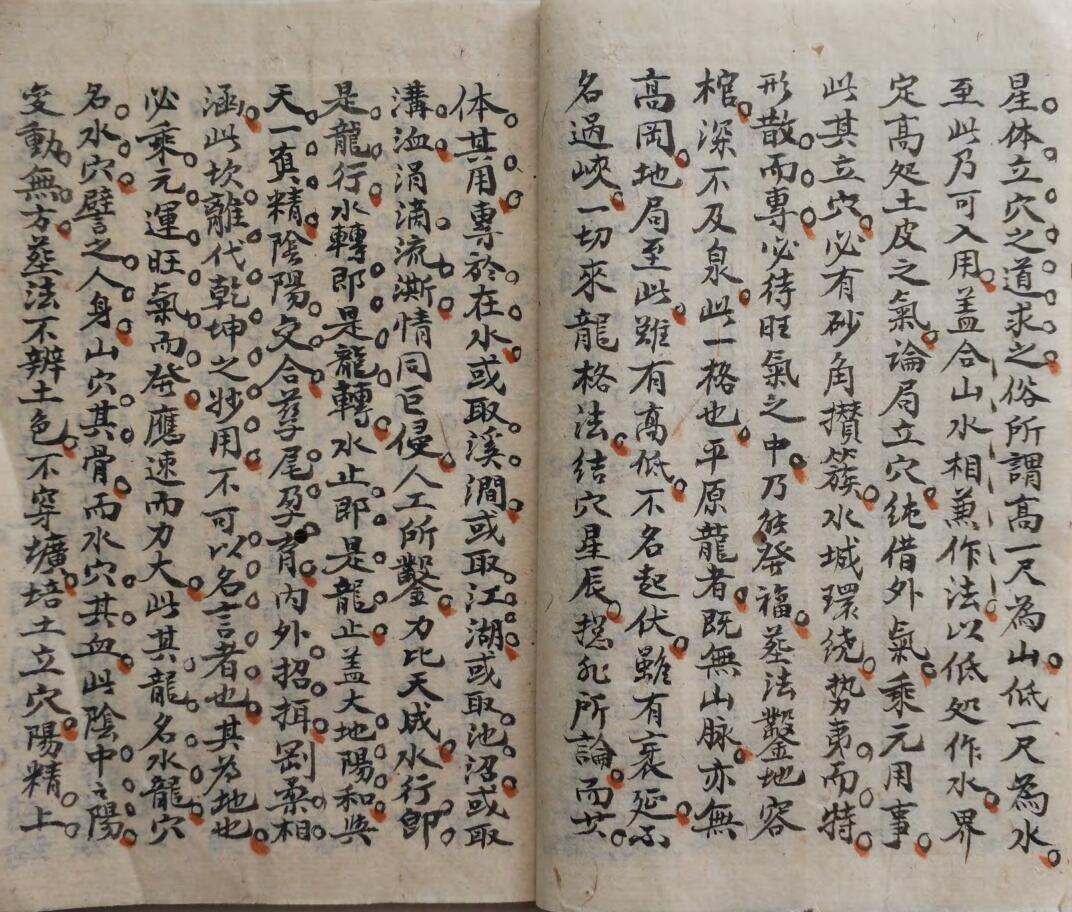 星体立穴之道求之俗所謂高一尺為山低一尺為水
至此乃可入用盖合山水相兼作法以低処作水界
定高処土皮之氣論局立穴純借外氣乘元用事
此其立穴必有砂角攢簇水城環绕势夷而特
形散而專必待旺氣之中乃能發福塟法鑿地容
棺深不及泉此一格也平原龍者既無山脉亦無
高岡地局至此雖有高低不名起伏雖有衺延不
名過峽一切來龍格法結穴星辰揔非所論而其
体其用專於在水或取溪澗或取江湖或取池沼或取
溝洫涓滴流澌情同巨侵人工所鑿力比天成水行即
是龍行水轉即是龍轉水止即是龍止盖大地陽和與
天一真精陰陽交合孳尾孕育内外招摄剛柔相
涵此坎離代乾坤之妙用不可以名言者也其為地也
必乘元運旺氣而發應速而力大此其龍名水龍穴
名水穴譬之人身山穴其骨而水穴其血此陰中之陽
变動無方塟法不辨土色不穿壙培土立穴陽精上